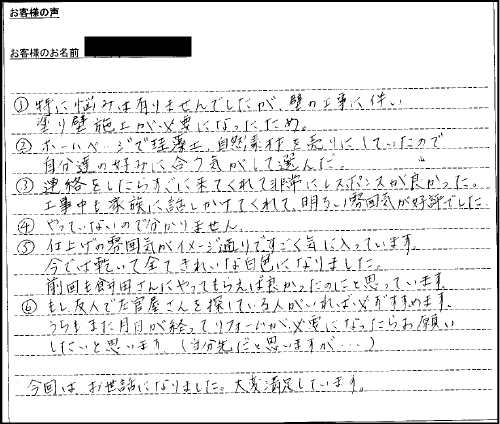 お客様の声
お客様のお名前
① 特に悩みは有りませんでしたが、壁の工事に伴い
塗り壁施工が必要になったため。
② ホームページで珪藻土、自然素材を売りにしていたので
自分達の好みに合う気がして選んだ。
③ 連絡をしたらすぐに来てくれて非常にレスポンスが良かった。
工事中も家族に話しかけてくれて、明るい雰囲気が好評でした
④ やっていないので分かりません
⑤ 仕上げの雰囲気がイメージ通りですごく気に入っています。
今では乾いて全てきれいな白色になりました。
前回も飼田さんにやってもらえば良かったのにと思っています。
⑥ もし友人で左官屋さんを探している人がいれば必ずすすめます。
うちもまた月日が経ってリフォームが必要になったらお願い
したいと思います (当分先だと思いますが・・・)
今回はお世話になりました。大変満足しています。